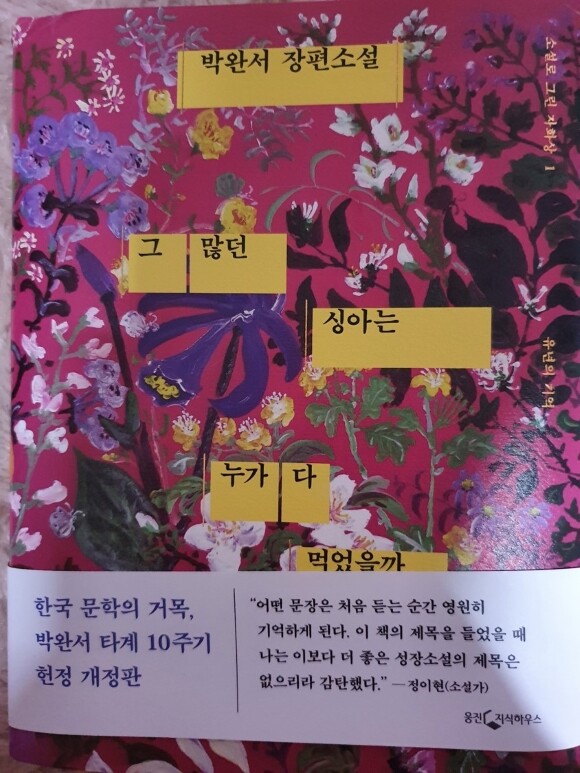 박완서 장편소설
소설로 그린 자화상 1
유년의 기억
그 많던
싱아는
누가 다
먹었을까
한국 문학의 거목,
박완서 타계 10주기
헌정 개정판
“어떤 문장은 처음 듣는 순간 영원히
기억하게 된다. 이 책의 제목을 들었을 때
나는 이보다 더 좋은 성장소설의 제목은
없으리라 감탄했다.” — 정이현(소설가)
웅진 지식하우스